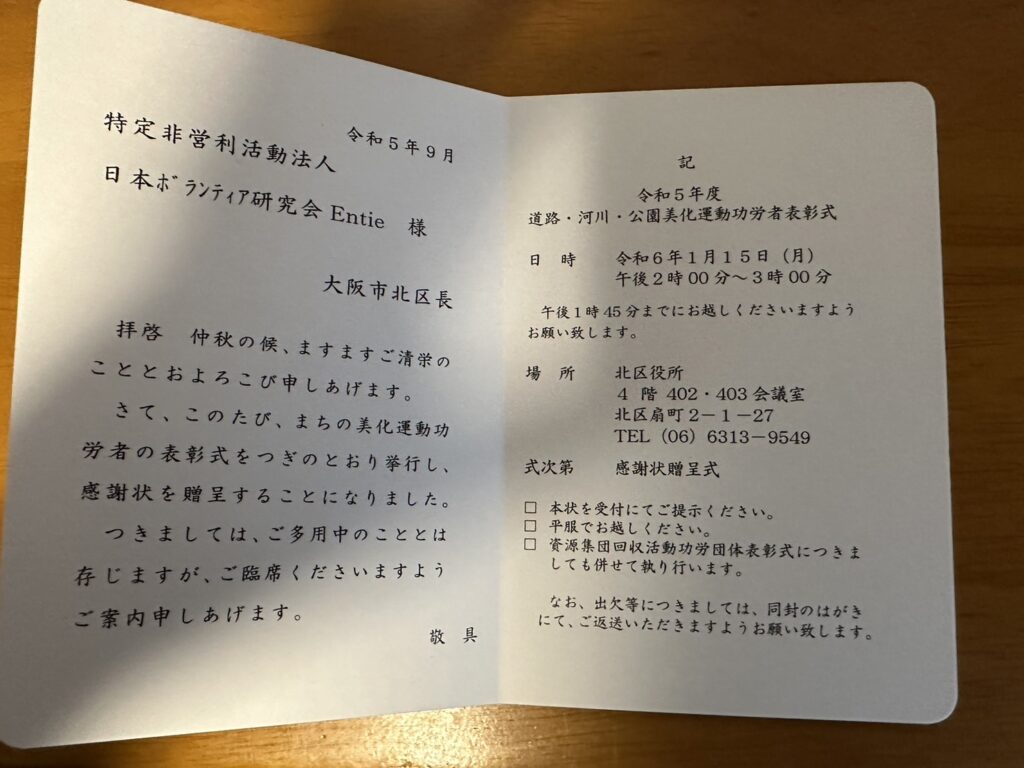 令和５年９月
特定非営利活動法人
日本ﾎﾞﾗﾝﾃｨｱ研究会 Entie　様
大阪市北区長
拝啓　仲秋の候、ますますご清栄の
こととおよろこび申しあげます。
さて、このたび、まちの美化運動功
労者の表彰式をつぎのとおり挙行し、
感謝状を贈呈することになりました。
つきましては、ご多用中のこととは
存じますが、ご臨席くださいますよう
ご案内申しあげます。
敬　具
記
令和５年度
道路・河川・公園美化運動功労者表彰式
日　時　　令和６年１月１５日（月）
午後２時 00 分～３時 00 分
午後１時 45 分までにお越しくださいますよう
お願い致します。
場　所　　北区役所
４ 階 402・403 会議室
北区扇町２－１－27
TEL（06）6313－9549
式次第　　感謝状贈呈式
□ 本状を受付にてご提示ください。
□ 平服でお越しください。
□ 資源集団回収活動功労団体表彰式につきま
しても併せて執り行います。
なお、出欠等につきましては、同封のはがき
にて、ご返送いただきますようお願い致します。